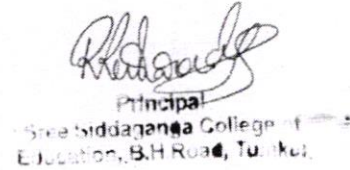 Principal
Sree Siddaganga College of
Education, B.H Road, Tumkur